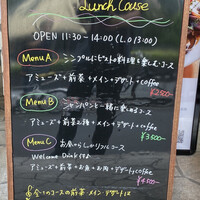 Lunch Couse
OPEN 11:30 - 14:00 (L.O 13:00)
Menu A シンプルにビストロ料理を楽しむコース
アミューズ+前菜+メイン+デザート+coffee
¥2500-
Menu B シャンパンと一緒に楽しめるコース
アミューズ+前菜2種+メイン+デザート+coffee
¥3500-
Menu C お昼からしっかりフルコース
Welcome Drink
アミューズ+前菜+お魚+お肉+デザート+coffee
¥4500-
全てのコースの前菜・メイン・デザートは